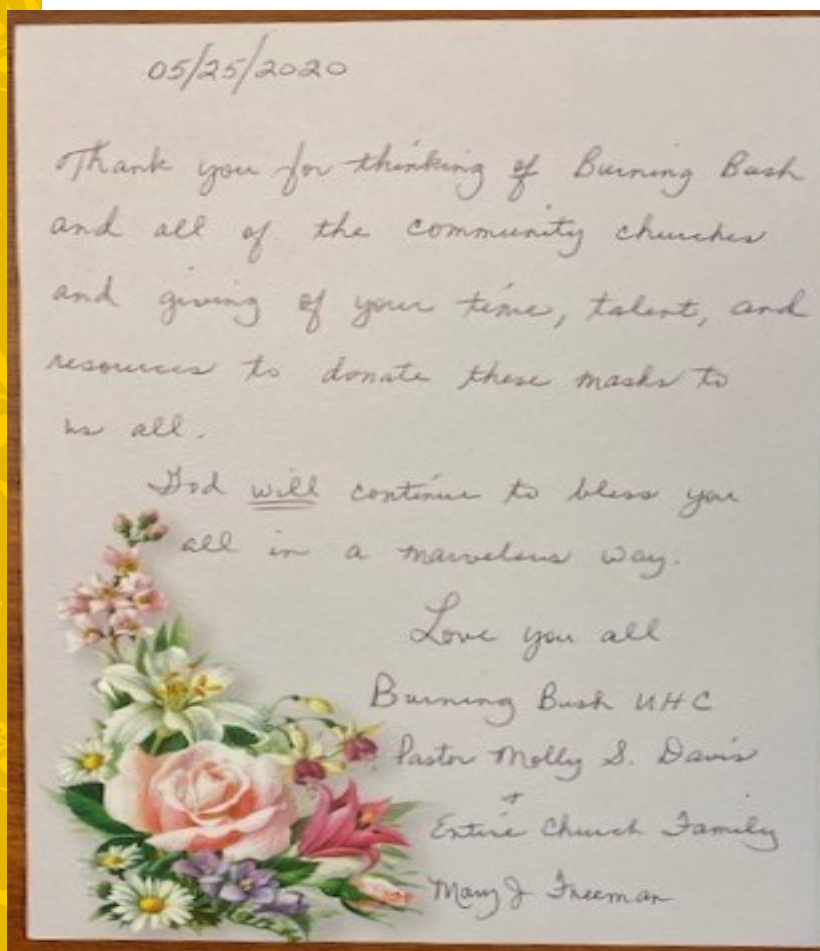 05/25/2020
Thank you for thinking of Burning Bush
and all of the community churches
and giving of your time, talent, and
resources to donate these masks to
us all.
God will continue to bless you
all in a marvelous way.
Love you all
Burning Bush UHC
Pastor Molly S. Davis
+
Entire Church Family
Mary J Freeman